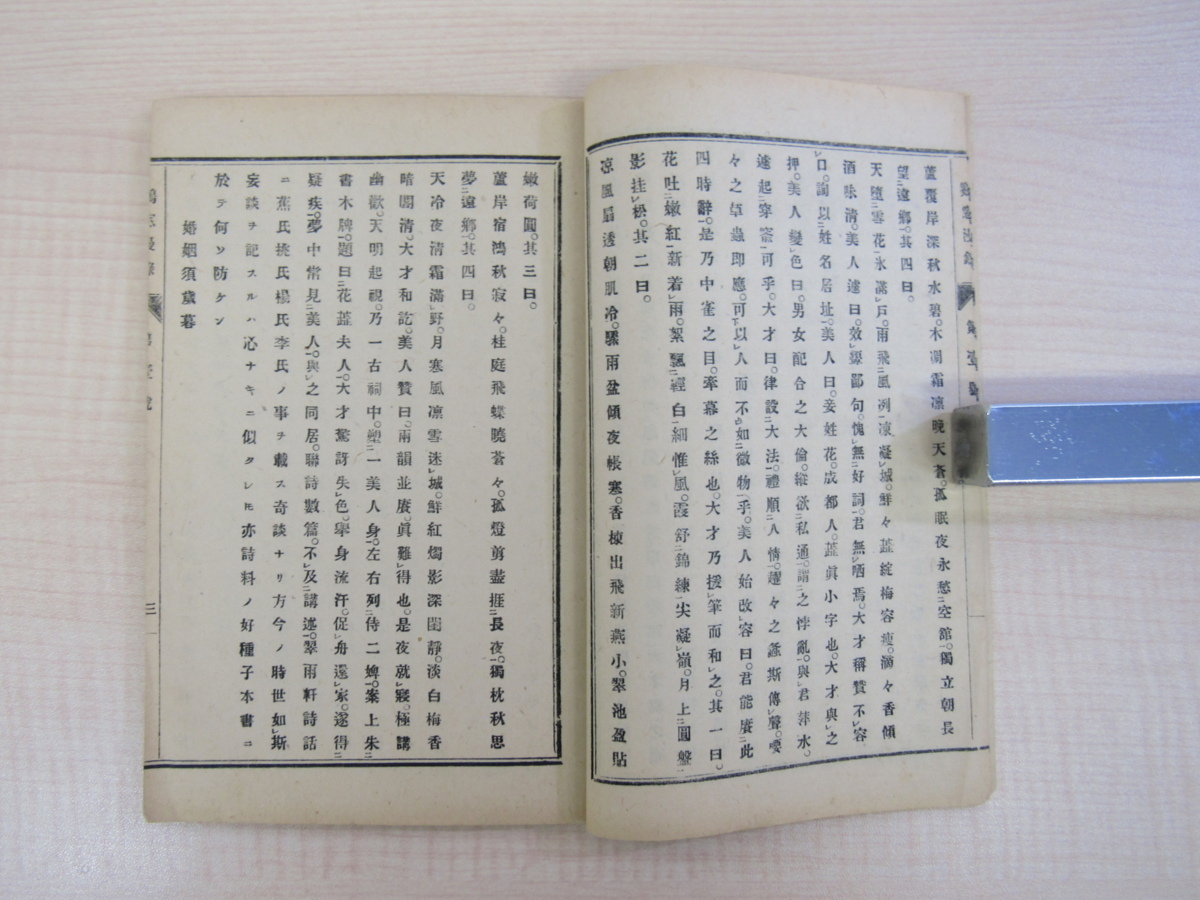 蘆覆岸深秋水碧。木凋霜凜晚天蒼。孤眠夜永愁空舘。獨立朝長
望遠鄉。其四曰。
天墮雪花氷滿戶。雨飛風冽凍凝城。鮮々蘂綻梅容瘦。滴々香傾
酒味淸。美人遽曰。效顰鄙句。愧無好詞。君無哂焉。大才稱贊不容
口。詢以姓名居址。美人曰。妾姓花。成都人。蘂眞小字也。大才與之
押。美人變色曰。男女配合之大倫。縱欲私通。謂之悖亂。與君萍水。
遽起穿窬可乎。大才曰。律設大法。禮順人情。趯々之螽斯傳聲。喓
々之草蟲即應。可以人而不如微物乎。美人始改容曰。君能賡此
四時辭。是乃中雀之目。牽幕之絲也。大才乃援筆而和之。其一曰。
花吐嫩紅新着雨。絮飄輕白細惟風。霞舒錦練尖凝嶺。月上圓盤
影挂松。其二曰。
凉風扇透朝肌冷。驟雨盆傾夜帳寒。香棟出飛新燕小。翠池盈貼
嫩荷圓。其三曰。
蘆岸宿鴻秋寂々。桂庭飛蝶曉蒼々。孤燈剪盡捱長夜。獨枕秋思
夢遠鄉。其四曰。
天冷夜淸霜滿野。月寒風凛雪迷城。鮮紅燭影深閨靜。淡白梅香
暗閣淸。大才和訖。美人贊曰。兩韻並賡。眞難得也。是夜就寢。極講
幽歡。天明起視。乃一古祠中。塑一美人身。左右列侍二婢。案上朱
書木牌。題曰花蘂夫人。大才驚訝失色。舉身流汗。促舟還家。遂得
疑疾。夢中常見美人。與之同居。聯詩數篇。不及講述。翠雨軒詩話
ニ蕉氏桃氏楊氏李氏ノ事ヲ載ス奇談ナリ方今ノ時世如斯
妄談ヲ記スルハ心ナキニ似タレ𪜈亦詩料ノ好種子本書ニ
於テ何ソ防ケン
婚姻須歲暮
三